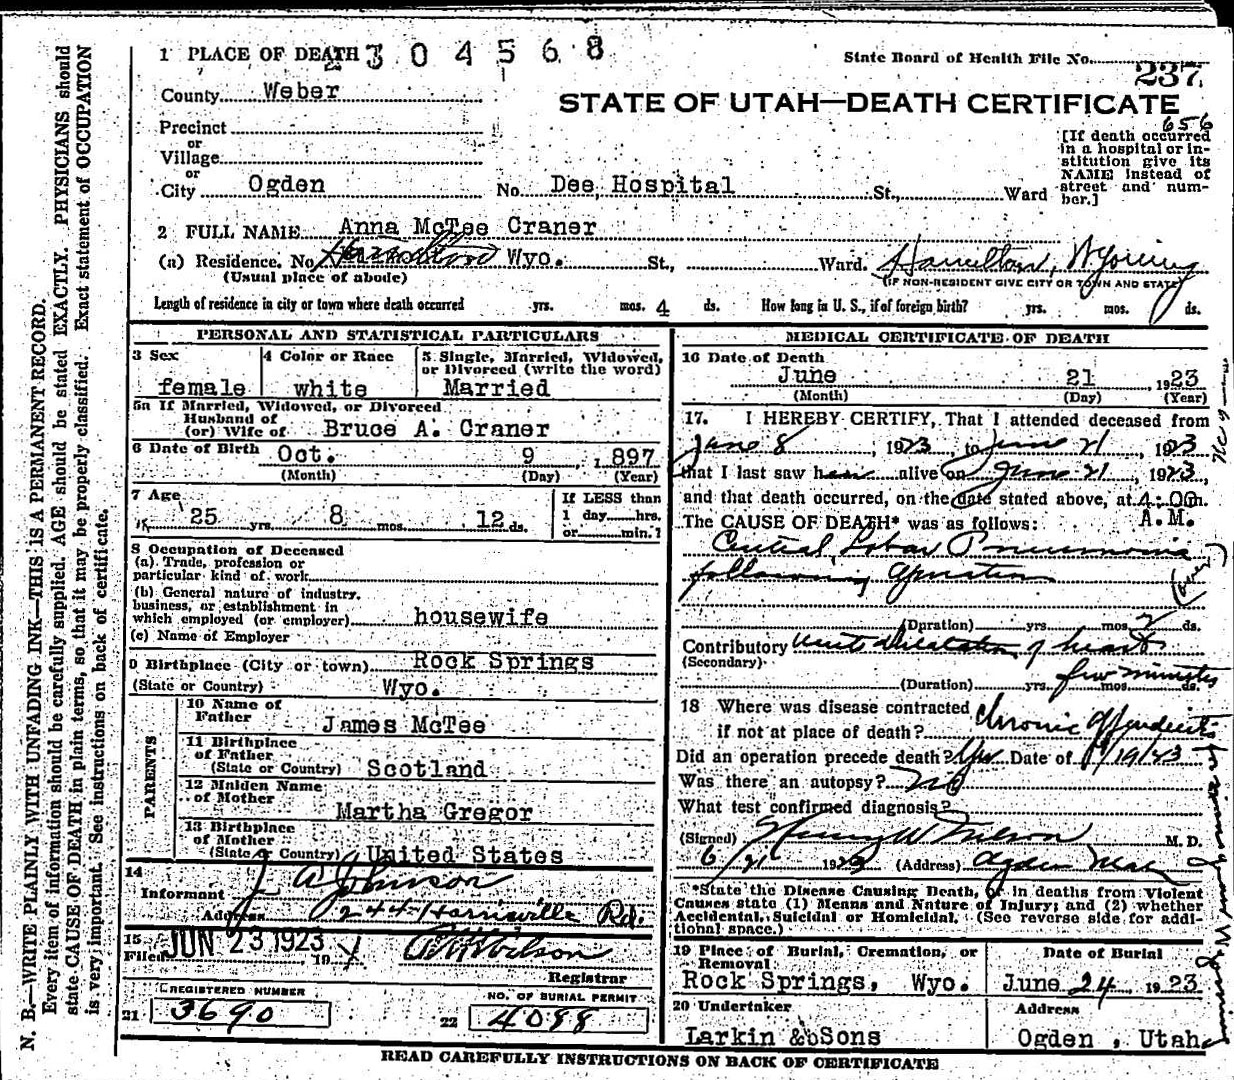 1 PLACE OF DEATH
304568
State Board of Health File No. 237
County Weber
STATE OF UTAH—DEATH CERTIFICATE
656
Precinct
or
Village
or
City Ogden No. Dee Hospital St., Ward
[If death occurred
in a hospital or in-
stitution give its
NAME instead of
street and num-
ber.]
2 FULL NAME Anna McTee Craner
(a) Residence. No. Wyo. St., Ward. Hamilton, Wyoming
(Usual place of abode)
(IF NON-RESIDENT GIVE CITY OR TOWN AND STATE)
Length of residence in city or town where death occurred yrs. mos. 4 ds. How long in U. S., if of foreign birth? yrs. mos. ds.
PERSONAL AND STATISTICAL PARTICULARS
3 Sex
female
4 Color or Race
white
5 Single, Married, Widowed,
or Divorced (write the word)
Married
5a If Married, Widowed, or Divorced
Husband of
(or) Wife of Bruce A. Craner
6 Date of Birth Oct. 9 , 1897
(Month) (Day) (Year)
7 Age
25 yrs. 8 mos. 12 ds.
If LESS than
1 day hrs.
or min.?
8 Occupation of Deceased
(a) Trade, profession or
particular kind of work
(b) General nature of industry,
business, or establishment in
which employed (or employer) housewife
(c) Name of Employer
9 Birthplace (City or town) Rock Springs
(State or Country) Wyo.
PARENTS
10 Name of
Father James McTee
11 Birthplace
of Father
(State or Country) Scotland
12 Maiden Name
of Mother Martha Gregor
13 Birthplace
of Mother
(State or Country) United States
14
Informant J A Johnson
Address 244 Harrisville Rd.
15
Filed JUN 23 1923 19
Registrar
REGISTERED NUMBER
21 3690
NO. OF BURIAL PERMIT
22 4088
MEDICAL CERTIFICATE OF DEATH
16 Date of Death
June 21 , 1923
(Month) (Day) (Year)
17. I HEREBY CERTIFY, That I attended deceased from
June 8 , 1923, to June 21 , 1923
that I last saw her alive on June 21 , 1923,
and that death occurred, on the date stated above, at 4:00 m.
A.M.
The CAUSE OF DEATH* was as follows:
Central Lobar Pneumonia
following Operation
(over)
(Duration) yrs. mos. 2 ds.
Contributory Acute Dilatation of heart
(Secondary)
(Duration) yrs. mos. ds.
few minutes
18 Where was disease contracted
if not at place of death? Chronic Appendicitis
Did an operation precede death? Yes Date of
Was there an autopsy? No
What test confirmed diagnosis?
(Signed) M. D.
6/21 1923 (Address) Ogden Utah
*State the Disease Causing Death, or in deaths from Violent
Causes state (1) Means and Nature of Injury; and (2) whether
Accidental, Suicidal or Homicidal. (See reverse side for addi-
tional space.)
19 Place of Burial, Cremation, or
Removal
Rock Springs, Wyo.
Date of Burial
June 24 , 1923
20 Undertaker
Larkin & Sons
Address
Ogden , Utah
READ CAREFULLY INSTRUCTIONS ON BACK OF CERTIFICATE
N. B.—WRITE PLAINLY WITH UNFADING INK—THIS IS A PERMANENT RECORD.
Every item of information should be carefully supplied. AGE should be stated EXACTLY. PHYSICIANS should
state CAUSE OF DEATH in plain terms, so that it may be properly classified. Exact statement of OCCUPATION
is very important. See instructions on back of certificate.